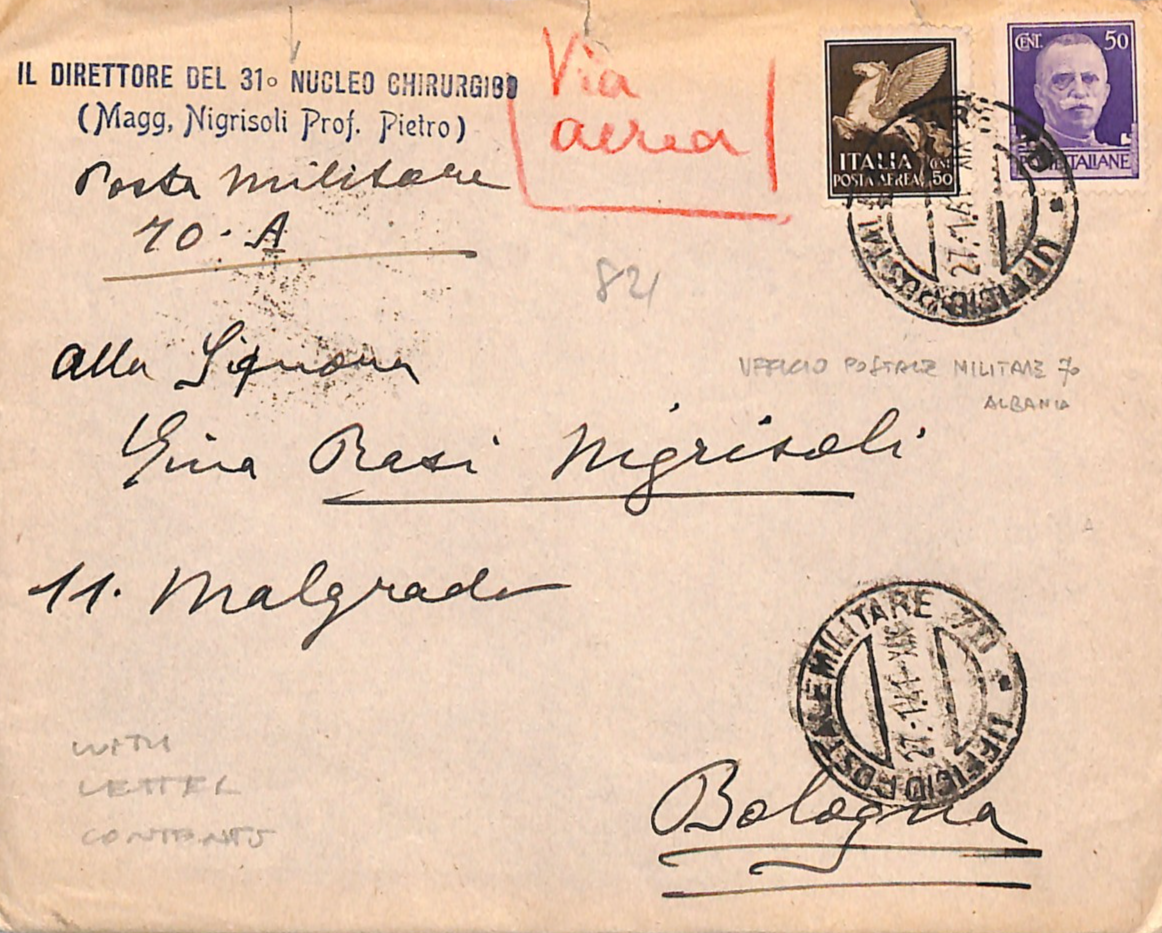 IL DIRETTORE DEL 31° NUCLEO CHIRURGICO
(Magg, Nigrisoli Prof. Pietro)
Posta Militare
70 - A
Via
aerea
ITALIA
POSTA AEREA
CENT
50
CENT. 50
POSTE ITALIANE
27.1.41 XIX
UFFICIO POSTALE MILITARE 70
82
UFFICIO POSTALE MILITARE 70
ALBANIA
alla Signora
Gina Rasi Nigrisoli
11. Malgrado
UFFICIO POSTALE MILITARE 70
27.1.41 XIX
WITH
LETTER
CONTENTS
Bologna